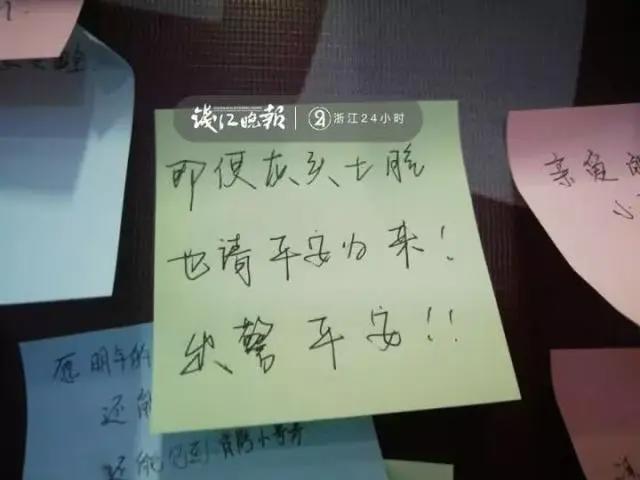 钱江晚报 浙江24小时
即便灰头土脸
也请平安归来!
出警平安!!
亲爱的
小
愿明年的
还能
还能见到消防小哥哥